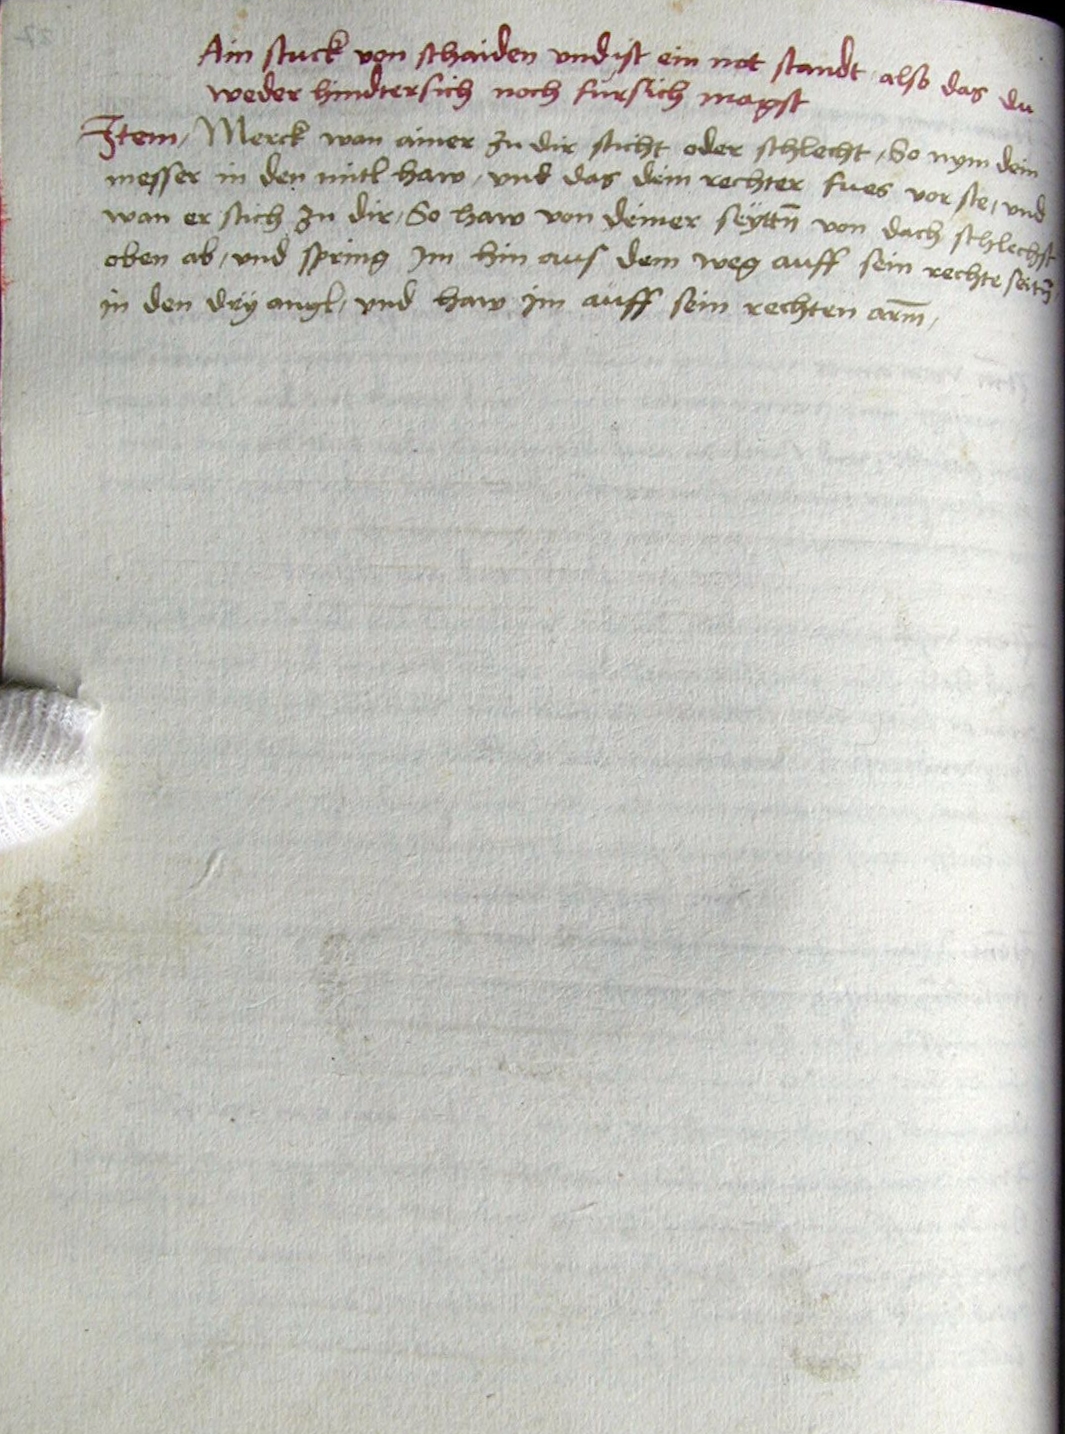 Ain stuck von schaiden vnd ist ein not standt also das du
weder hindtersich noch fürsich magst
Item / Merck wan ainer zu dir sticht oder schlecht / So nym dein
messer in den mitl haw / vnd das dein rechter fues vor ste / vnd
wan er stich zu dir / So haw von deiner seyttn̄ von dach schlechst
oben ab / vnd spring Im hin aus dem weg auff sein rechte seitn̄ /
in den dry angl / vnd haw im auff sein rechten arm̄ /